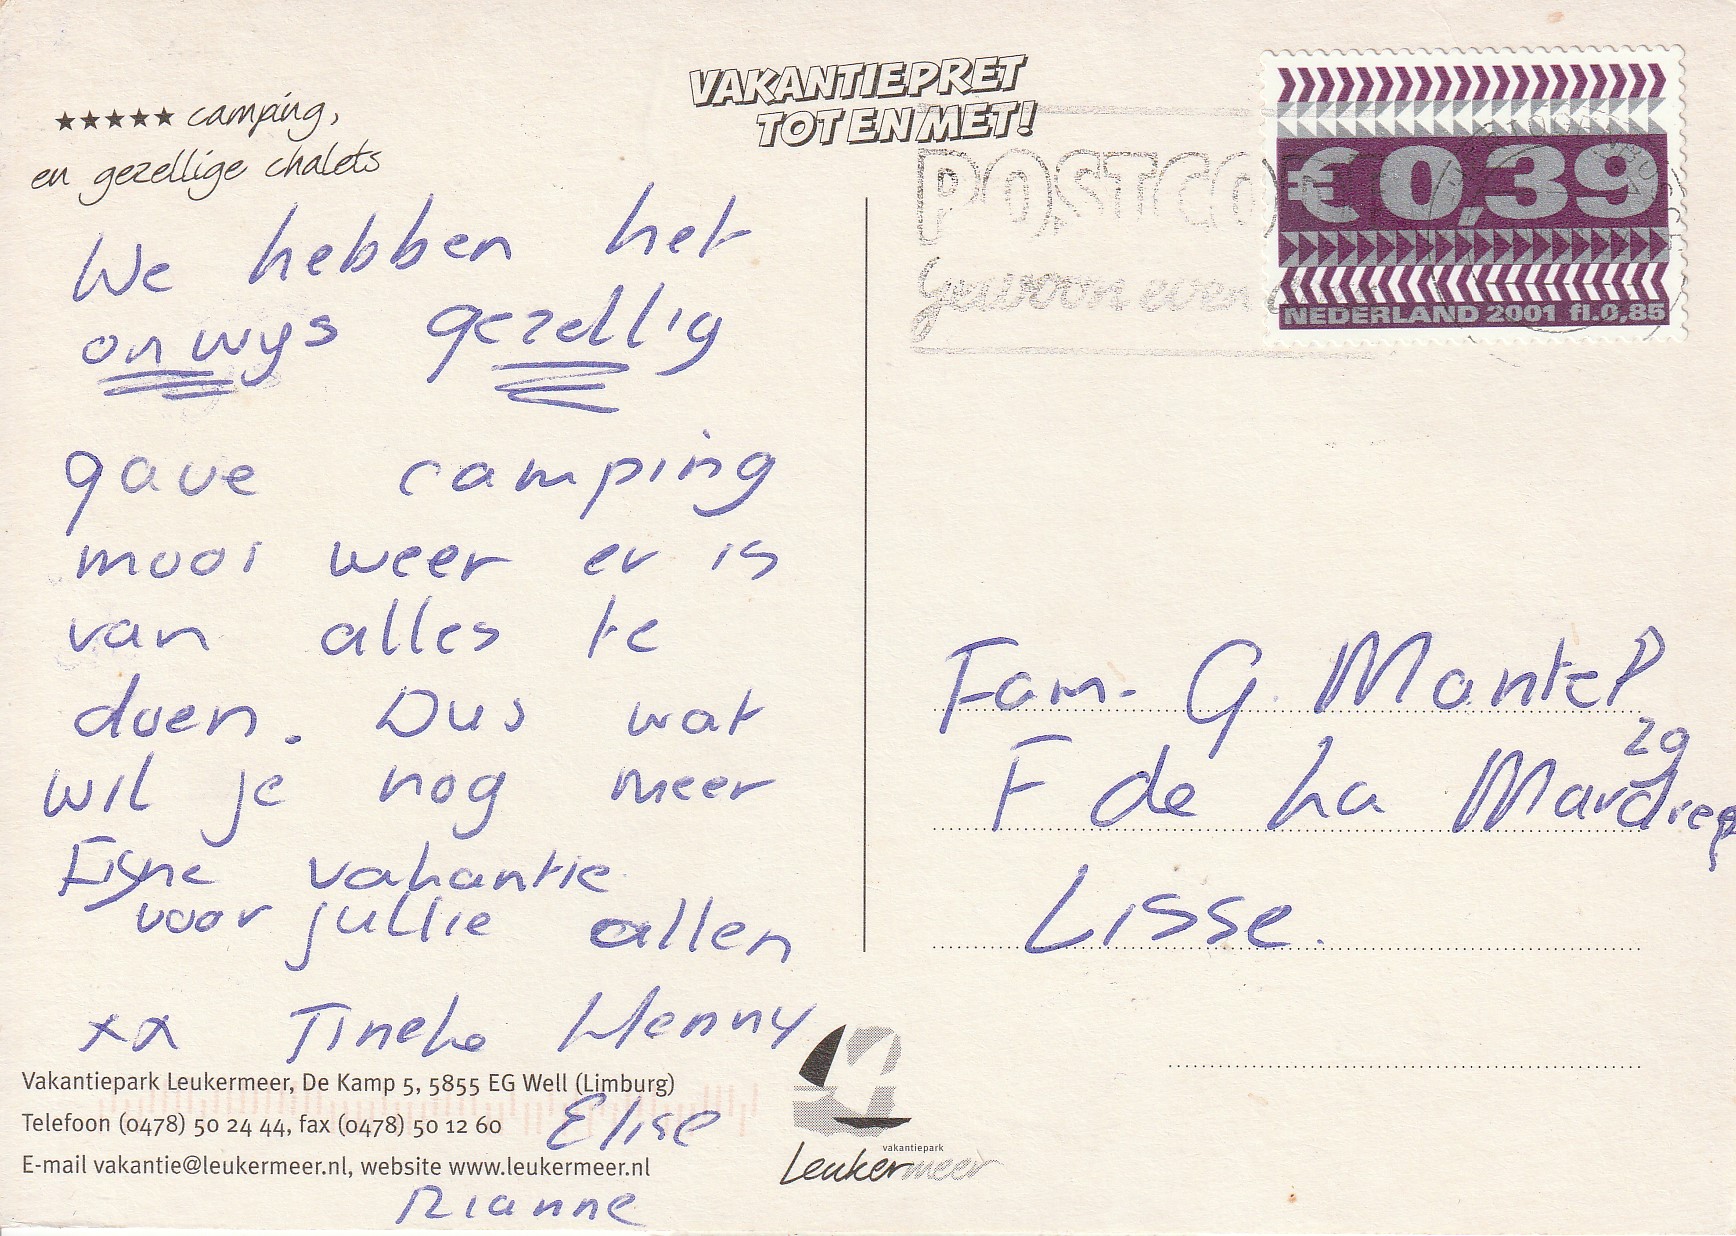 ★★★★★ camping,
en gezellige chalets
VAKANTIEPRET
TOT EN MET!
We hebben het
onwys gezellig
gave camping
mooi weer er is
van alles te
doen. Dus wat
wil je nog meer
Fijne vakantie
voor jullie allen
xx Tineke Henny
Elise
Rianne
Vakantiepark Leukermeer, De Kamp 5, 5855 EG Well (Limburg)
Telefoon (0478) 50 24 44, fax (0478) 50 12 60
E-mail vakantie@leukermeer.nl, website www.leukermeer.nl
vakantiepark
Leukermeer
POSTCO
Gewoon even
€ 0,39
NEDERLAND 2001 fl.0,85
Fam. G. Mantel
F de La Mardreef
29
Lisse.